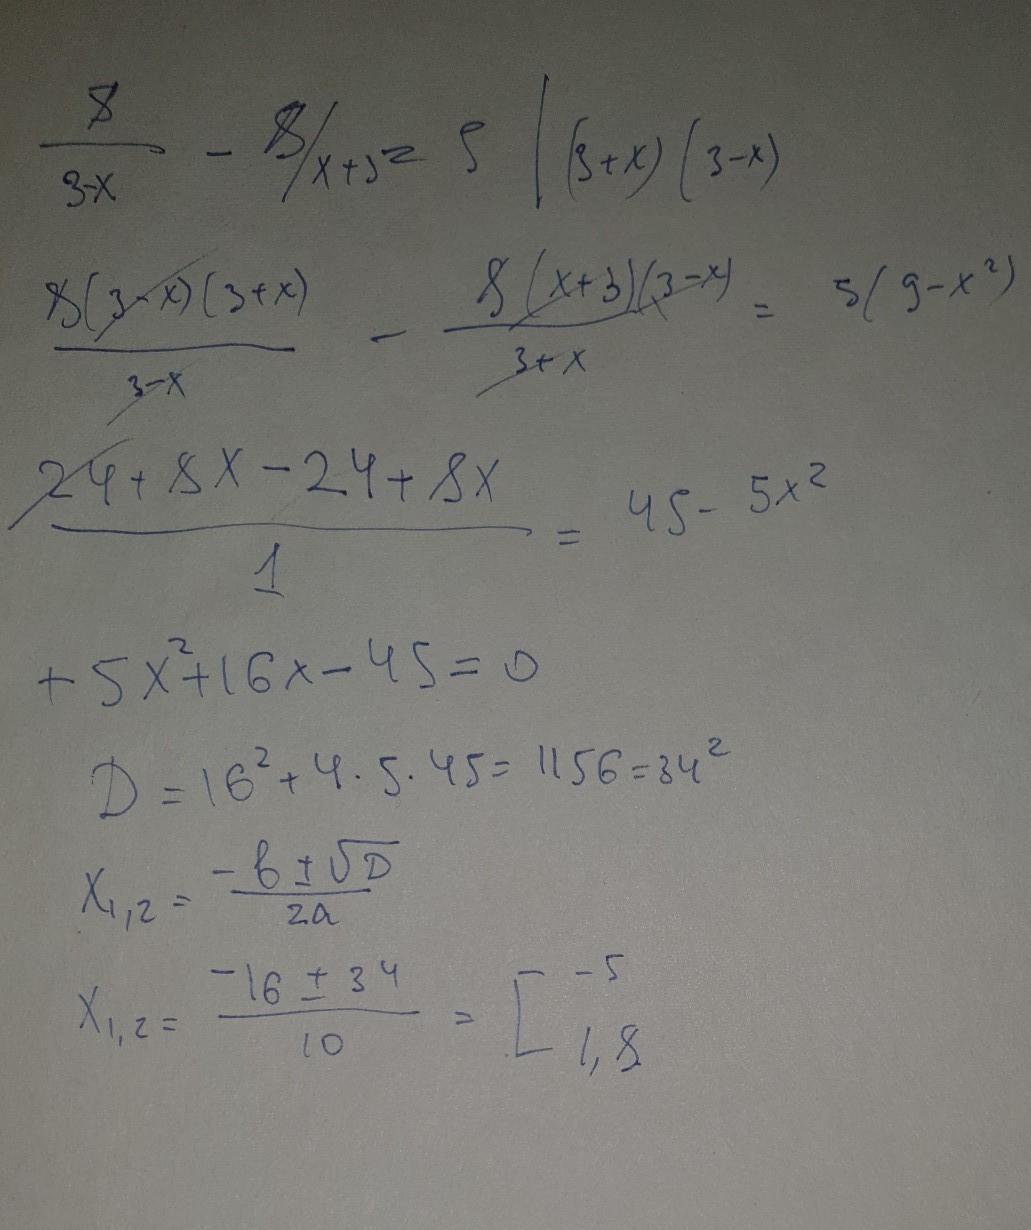 8/(3-x) - 8/x+3 = 5 | (3+x) (3-x)
8(3-x)(3+x)/(3-x) - 8(x+3)(3-x)/(3+x) = 5(9-x²)
(24+8x-24+8x)/1 = 45- 5x²
+5x²+16x-45=0
D=16²+4·5·45=1156=34²
x₁,₂= (-b±√D)/2a
x₁,₂= (-16±34)/10 = [ -5
1,8